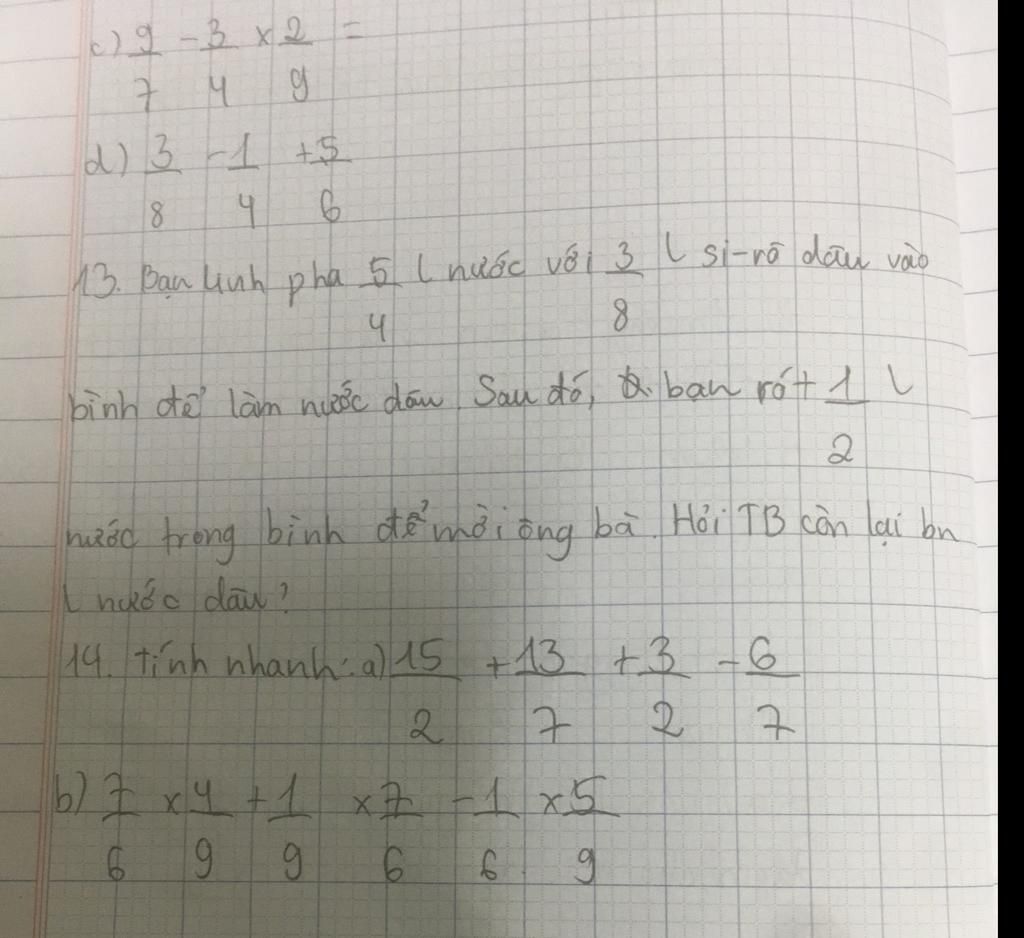 c) 9/7 - 3/4 x 2/9 =
d) 3/8 - 1/4 + 5/6
13. Bạn Linh pha 5/4 l nước với 3/8 l si-rô dâu vào
bình để làm nước dâu. Sau đó, bạn rót 1/2 l
nước trong bình để mời ông bà. Hỏi TB còn lại bn
l nước dâu?
14. tính nhanh: a) 15/2 + 13/7 + 3/2 - 6/7
b) 7/6 x 4/9 + 1/9 x 7/6 - 1/6 x 5/9